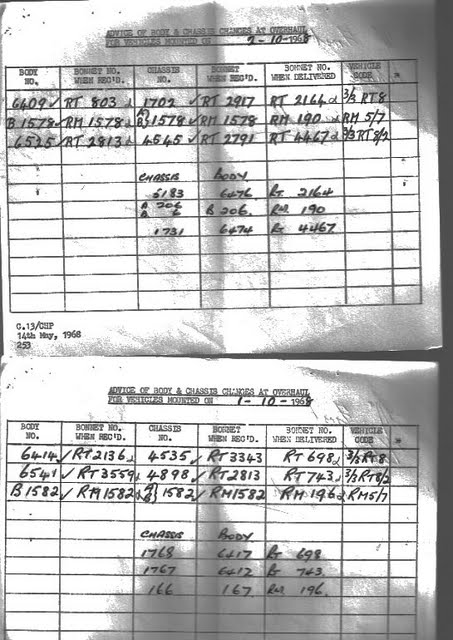 ADVICE OF BODY & CHASSIS CHANGES AT OVERHAUL
FOR VEHICLES MOUNTED ON 2-10-1968
BODY NO. BONNET NO. WHEN REC'D. CHASSIS NO. BONNET WHEN REC'D. BONNET NO. WHEN DELIVERED VEHICLE CODE
6409 ✓ RT 803 1702 ✓ RT 2917 RT 2164 3/3 RT8
B 1578 ✓ RM 1578 A/B 1578 ✓ RM 1578 RM 190 RM 5/7
6525 ✓ RT 2813 4545 ✓ RT 2791 RT 4467 3/3 RT8/2
CHASSIS BODY
5183 6476 RT 2164
A 206 B 206. RM 190
1731 6474 RT 4467
G.13/CHP
14th May, 1968
253
ADVICE OF BODY & CHASSIS CHANGES AT OVERHAUL
FOR VEHICLES MOUNTED ON 1-10-1968
BODY NO. BONNET NO. WHEN REC'D. CHASSIS NO. BONNET WHEN REC'D. BONNET NO. WHEN DELIVERED VEHICLE CODE
6414 ✓ RT2136 4535 ✓ RT3343 RT 698 3/3 RT8
6541 ✓ RT3559 4898 ✓ RT2813 RT743 3/3 RT8/2
B 1582 ✓ RM1582 A/B 1582 ✓ RM1582 RM196 RM5/7
CHASSIS BODY
1768 6417 RT 698
1767 6412 RT 743
166 167 RM 196